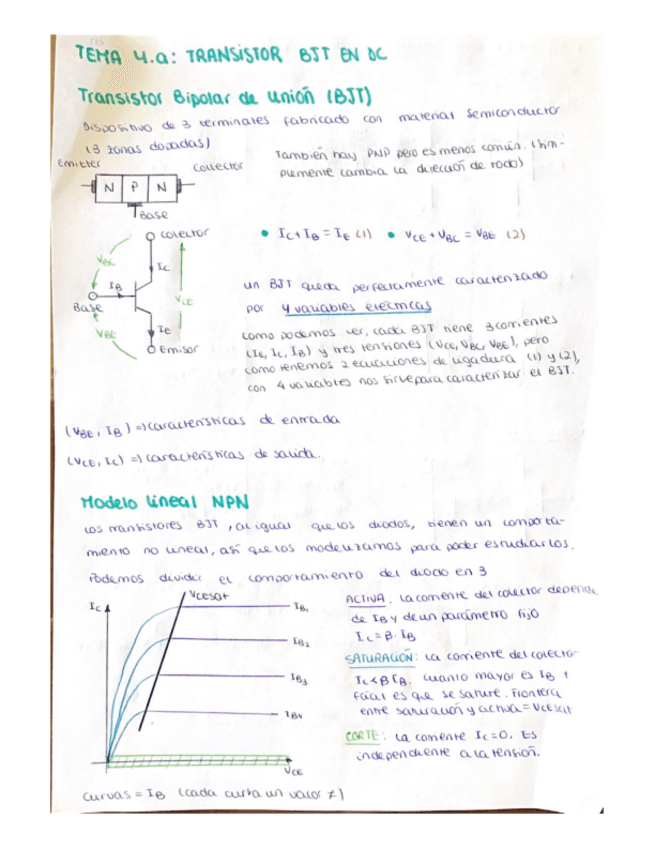 TEMA 4.a: TRANSISTOR BJT EN DC
Transistor Bipolar de Unión (BJT)
Dispositivo de 3 terminales fabricado con material semiconductor
(3 zonas dopadas)
Emitter
Collector
También hay PNP pero es menos común. (Sim-
plemente cambia la dirección de todo)
N P N
Base
Colector
• IC + IB = IE (1) • VCE + VBC = VBE (2)
VBC
IC
IB
VCE
Base
VBE
IE
Emisor
un BJT queda perfectamente caracterizado
por 4 variables eléctricas
como podemos ver, cada BJT tiene 3 corrientes
(IE, IC, IB) y tres tensiones (VCE, VBC, VBE), pero
como tenemos 2 ecuaciones de ligadura (1) y (2),
con 4 variables nos sirve para caracterizar el BJT.
(VBE, IB) => características de entrada
(VCE, IC) => características de salida.
Modelo lineal NPN
Los transistores BJT, al igual que los diodos, tienen un comporta-
miento no lineal, así que los modelizamos para poder estudiarlos.
Podemos dividir el comportamiento del diodo en 3
IC
VCEsat
IB1
IB2
IB3
IB4
VCE
ACTIVA. La corriente del colector depende
de IB y de un parámetro fijo
IC = β · IB
SATURACIÓN: La corriente del colector
IC < β IB. Cuanto mayor es IB +
fácil es que se sature. Frontera
entre saturación y activa = VCEsat
CORTE: La corriente IC = 0. Es
independiente a la tensión.
Curvas = IB (cada curva un valor ≠)